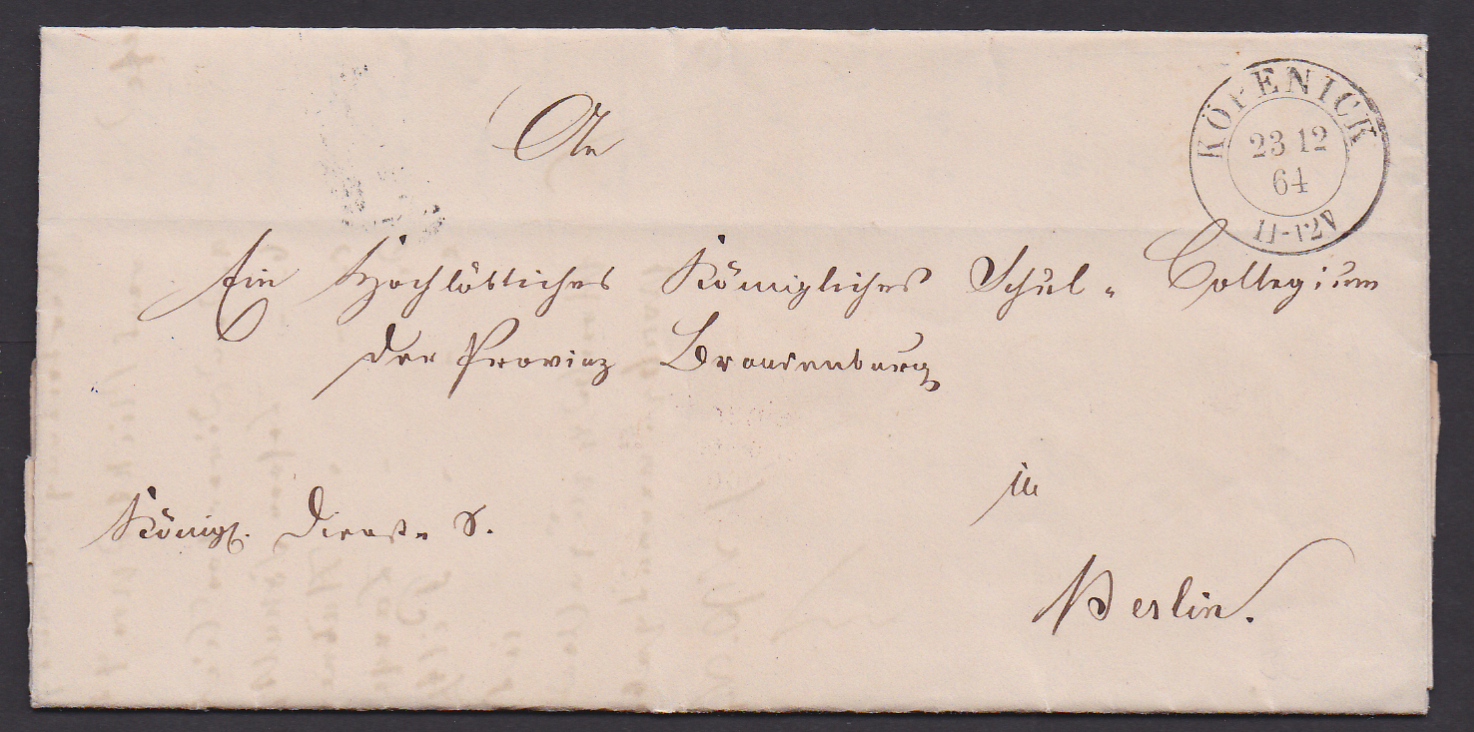 An
KÖPENICK
23 12
64
11-12V
Ein Hochlöbliches Königliches Schul- Collegium
der Provinz Brandenburg
in
Königl. Dienst- S.
Berlin.